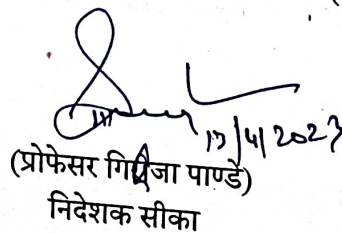 13/4/2023
(प्रोफेसर गिरिजा पाण्डे)
निदेशक सीका